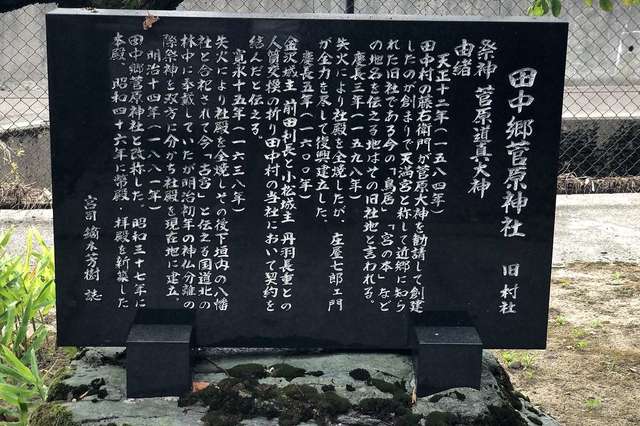 田中郷菅原神社　旧村社
祭神　菅原道真大神
由緒
天正十二年（一五八四年）
田中村の藤右衛門が菅原大神を勧請して創建
したのが創まりで天満宮と称して近郷に知ら
れた旧社である今の「鳥居」「宮の本」など
の地名を伝える地はその旧社地と言われる。
慶長三年（一五九八年）
失火により社殿を全焼したが、庄屋七郎ェ門
が全力を尽して復興建立した。
慶長五年（一六〇〇年）
金沢城主　前田利長と小松城主　丹羽長重との
人質交換の折り田中村の当社において契約を
結んだと伝える。
寛永十五年（一六三八年）
失火により社殿を全焼しその後下垣内の八幡
社と合祀されて今「古宮」と伝える国道北の
林中に奉戴していたが明治初年の神仏分離の
際祭神を双方に分かち社殿を現在地に建立、
明治十四年（一八八一年）
田中郷菅原神社と改称した。昭和三十七年に
本殿、昭和四十六年に幣殿、拝殿を新築した
宮司　　水芳樹　誌